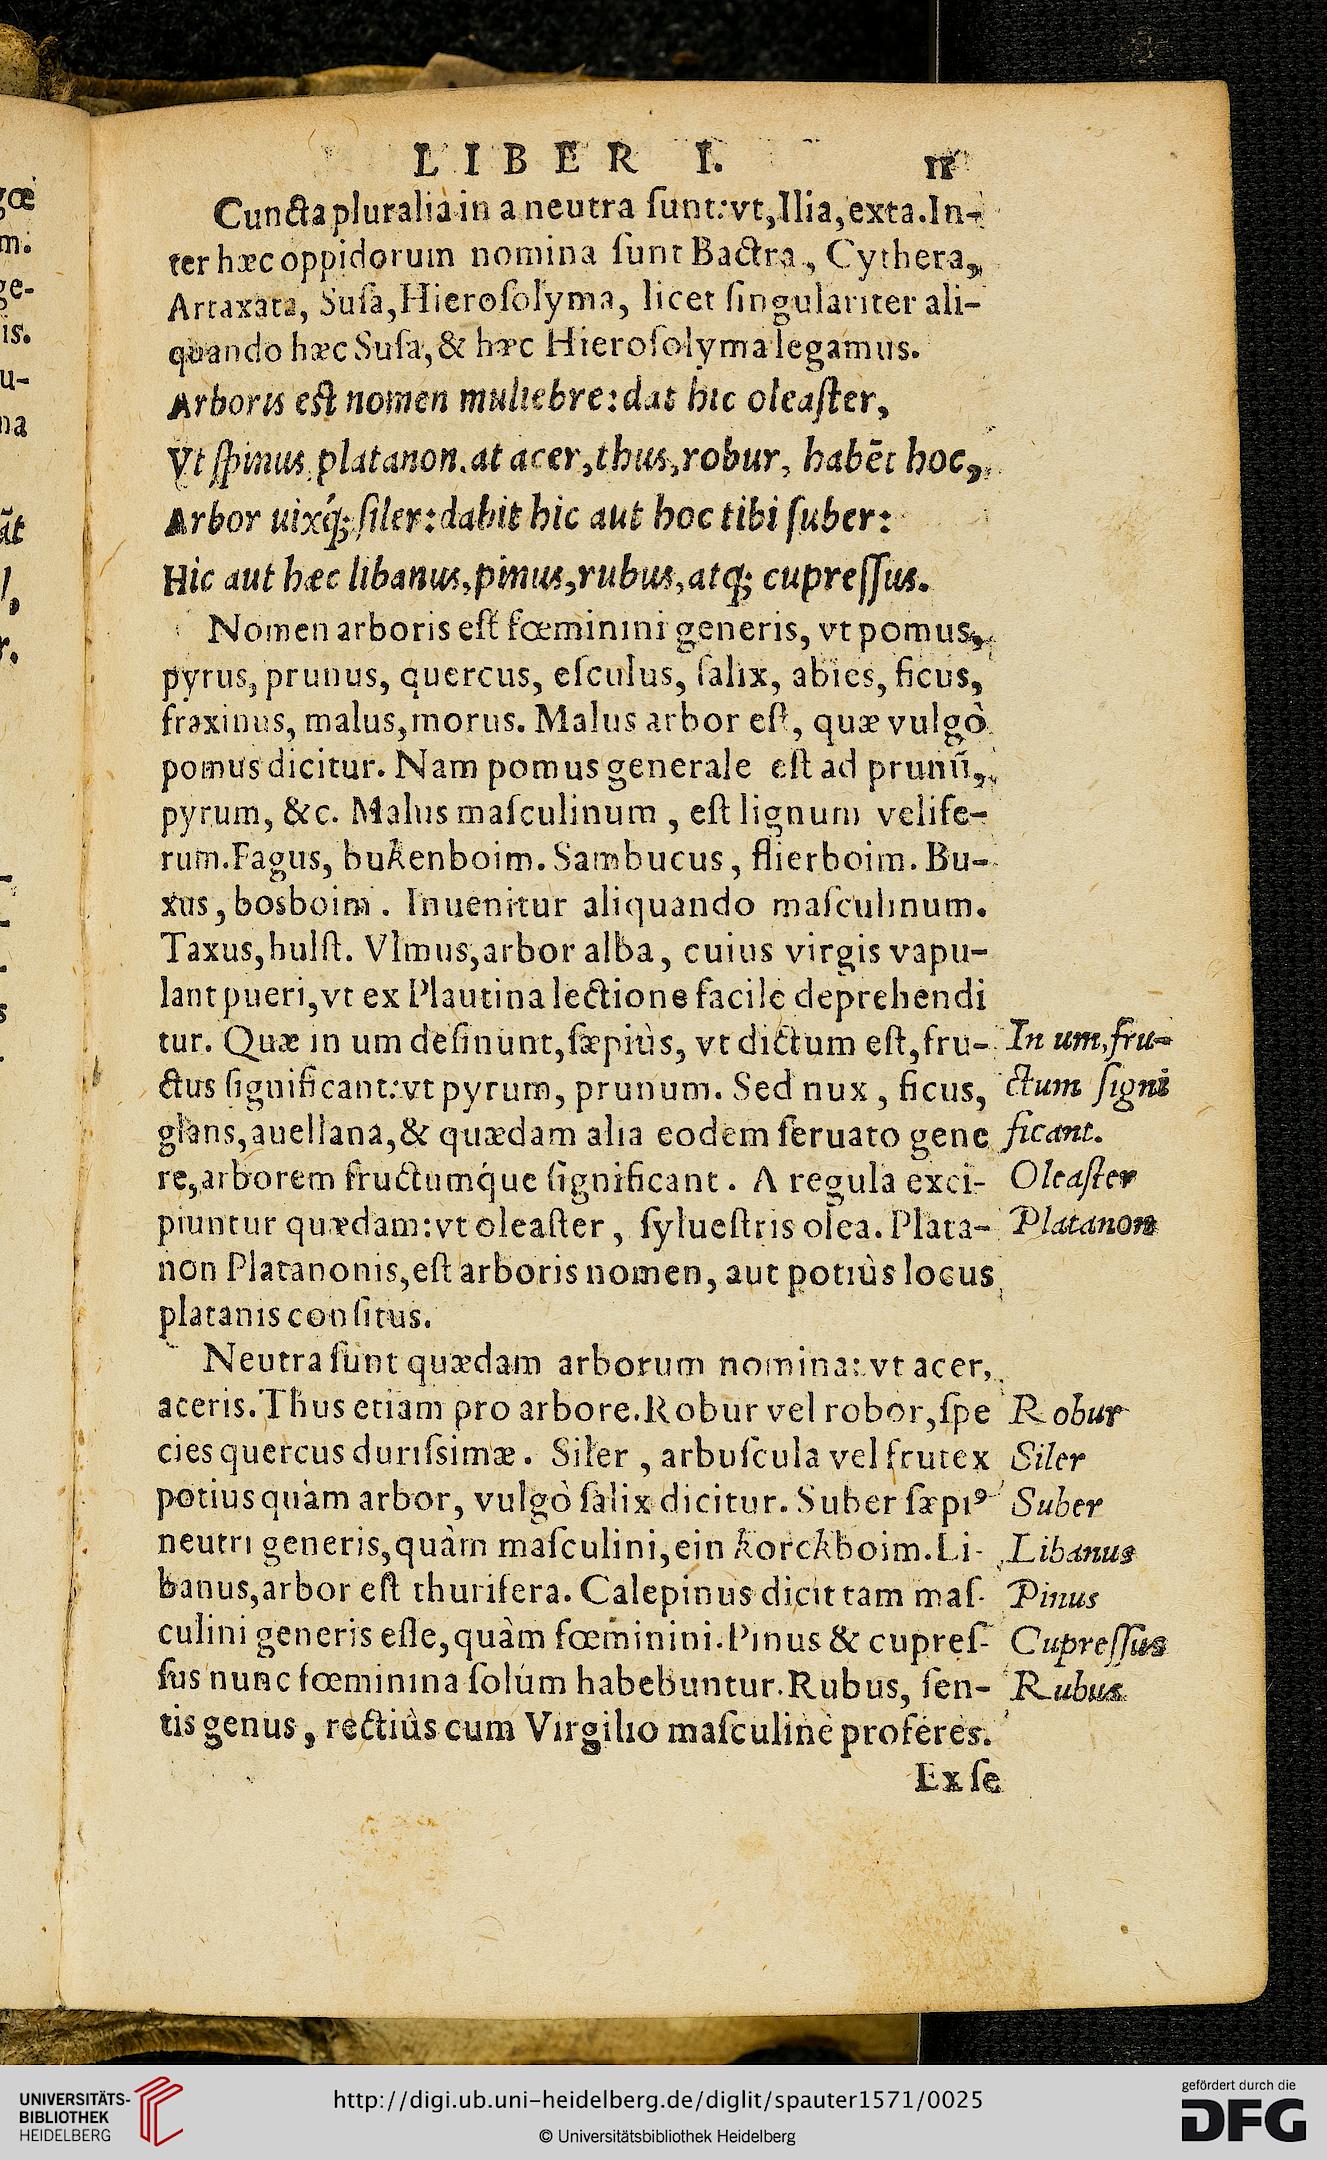 LIBER I. 11
Cuncta pluralia in a neutra ſunt: vt, Ilia, exta. In-
ter hæc oppidorum nomina ſunt Bactra, Cythera,
Artaxata, Suſa, Hieroſolyma, licet ſingulariter ali-
quando hæc Suſa, & hæc Hieroſolyma legamus.
Arboris eſt nomen muliebre: dat hic oleaſter,
Vt ſpinus platanon. at acer, thus, robur, habēt hoc,
Arbor uixq́; ſiler: dabit hic aut hoc tibi ſuber:
Hic aut hæc libanus, pinus, rubus, atq; cupreſſus.
Nomen arboris eſt fœminini generis, vt pomus,
pyrus, prunus, quercus, eſculus, ſalix, abies, ficus,
fraxinus, malus, morus. Malus arbor eſt, quæ vulgò
pomus dicitur. Nam pomus generale eſt ad prunū,
pyrum, &c. Malus maſculinum, eſt lignum velife-
rum. Fagus, bukenboim. Sambucus, flierboim. Bu-
xus, bosboim. Inuenitur aliquando maſculinum.
Taxus, hulſt. Vlmus, arbor alba, cuius virgis vapu-
lant pueri, vt ex Plautina lectione facile deprehendi
tur. Quæ in um deſinunt, ſæpiùs, vt dictum eſt, fru-
ctus ſignificant: vt pyrum, prunum. Sed nux, ficus,
glans, auellana, & quædam alia eodem ſeruato gene
re, arborem fructumq́ue ſignificant. A regula exci-
piuntur quædam: vt oleaſter, ſylueſtris olea. Plata-
non Platanonis, eſt arboris nomen, aut potiùs locus
platanis conſitus.
Neutra ſunt quædam arborum nomina: vt acer,
aceris. Thus etiam pro arbore. Robur vel robor, ſpe
cies quercus duriſsimæ. Siler, arbuſcula vel frutex
potius quàm arbor, vulgò ſalix dicitur. Suber ſæpiꝰ
neutri generis, quàm maſculini, ein korckboim. Li-
banus, arbor eſt thurifera. Calepinus dicit tam maſ-
culini generis eſſe, quàm fœminini. Pinus & cupreſ-
ſus nunc fœminina ſolùm habebuntur. Rubus, ſen-
tis genus, rectiùs cum Virgilio maſculinè proferes.
Ex ſe
In um, fru-
ctum ſigni
ficant.
Oleaſter
Platanon
Robur
Siler
Suber
Libanus
Pinus
Cupreſſus
Rubus
gœ
m.
ge-
is.
u-
na
āt
l,
r.
UNIVERSITÄTS-
BIBLIOTHEK
HEIDELBERG
http://digi.ub.uni-heidelberg.de/diglit/spauter1571/0025
© Universitätsbibliothek Heidelberg
gefördert durch die
DFG